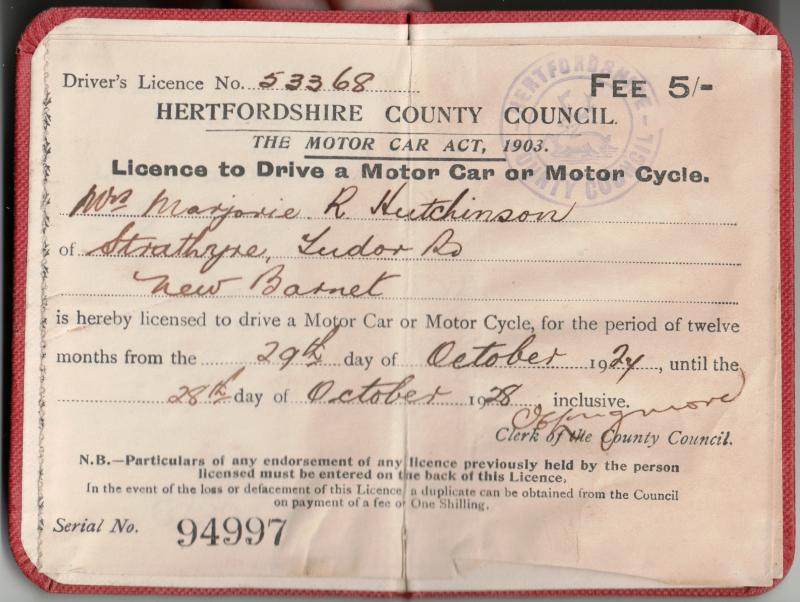 Driver's Licence No. 53368
FEE 5/-
HERTFORDSHIRE COUNTY COUNCIL.
HERTFORDSHIRE COUNTY COUNCIL
THE MOTOR CAR ACT, 1903.
Licence to Drive a Motor Car or Motor Cycle.
Mrs Marjorie R Hutchinson
of Strathyre, Tudor Rd
New Barnet
is hereby licensed to drive a Motor Car or Motor Cycle, for the period of twelve
months from the 29th day of October 1927, until the
28th day of October 1928, inclusive.
Clerk of the County Council.
N.B.—Particulars of any endorsement of any licence previously held by the person
licensed must be entered on the back of this Licence.
In the event of the loss or defacement of this Licence a duplicate can be obtained from the Council
on payment of a fee of One Shilling.
Serial No. 94997